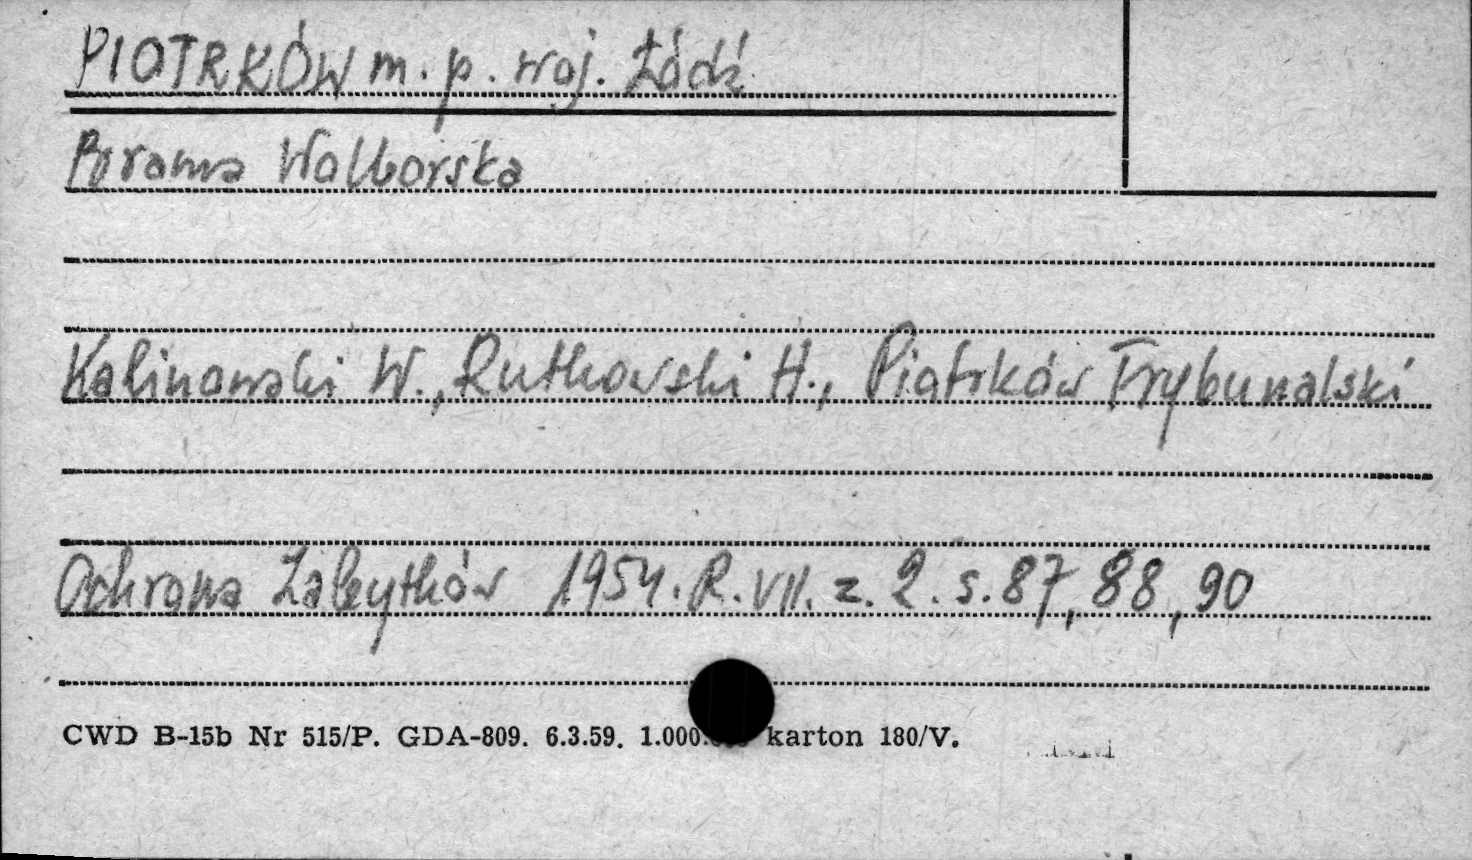 PIOTRKÓW m. p. woj. Łódź
Brama Wolborska
Kalinowski W., Rutkowski H., Piotrków Trybunalski
Ochrona Zabytków 1954. R. VII. z. 2. s. 87, 88, 90
CWD B-15b Nr 515/P. GDA-809. 6.3.59. karton 180/V.